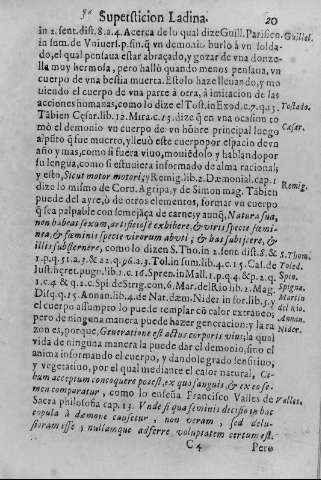 Supersticion Ladina. 20
in 2. sent. dist. 8. a. 4. Acerca de lo qual dize Guill. Parisien. Guillel.
in sum. de Vniuers. p. fin. q̃ vn demonio burlò à vn solda-
do, el qual pensaua estar abraçado, y gozar de vna donze-
lla muy hermosa, pero hallò quando menos pensaua, vn
cuerpo de vna bestia muerta. Esto lo haze lleuando, y mo
uiendo el cuerpo de vna parte à otra, à imitacion de las
acciones humanas, como lo dize el Tost. in Exod. c. 7. q. 13. Tostado.
Tãbien Cęsar. lib. 12. Mira. c. 15. dize q̃ en vna ocasion to
mò el demonio vn cuerpo de vn hõbre principal luego Cæsar.
q̃ fue muerto, y lleuò este cuerpo por espacio de vn
año y mas, como si fuera viuo, mouiẽdolo y hablando por
su lengua, como si estuuiera informado de alma racional;
y esto, Sicut motor motori; y Remig. lib. 2. Dæmonial. cap. 1 Remig.
dize lo mismo de Corn. Agripa, y de Simon mag. Tãbien
puede del ayre, ù de otros elementos, formar vn cuerpo
q̃ sea palpable con semejãça de carne; y aunq̃, Natura sua,
non habeat sexum, artificiose exhibere, & viris specie fœmi-
nea, & fœminis specie virorum abuti; & has subijcere, &
illis substernere, como lo dizen S. Thom. in 2. sent. dist. 8. & S. Thom.
1. p. q. 51. a. 3. & 22. q. 96. a. 3. Tol. in sum. lib. 4. c. 15. Cas. de Toled.
Iust. hęret. pugn. lib. 1. c. 16. Spren. in Mall. 1. p. q. 4. & p. 2. q. Spin.
1. c. 4. & q. 2. c. Spi. de Strig. con, 6. Mar. del Rio lib. 2. Mag. Spigna.
Disq. q. 15. Annan. lib. 4. de Nat. dæm. Nider in for. lib. 5. y Martin del Rio.
el cuerpo assumpto lo puede templar cõ calor extraneo; Annan.
pero de ninguna manera puede hazer generacion: y la ra Nider.
zon es, porque, Generatione est actus corporis viui; la qual
vida de ninguna manera la puede dar el demonio, sino el
anima informando el cuerpo, y dandole grado sensitiuo,
y vegetatiuo, por el qual mediante el calor natural, Ci-
bum acceptum concoquere potest, ex quo sanguis, & ex eo se-
men comparatur, como lo enseña Francisco Valles de Valles.
Sacra philosofia cap. 13. Vnde si qua seminis decisio in hac
copula à dæmone causetur, non veram, sed delu-
soriam esse; nullamque adferre voluptatem certum est.
C 4 Pero